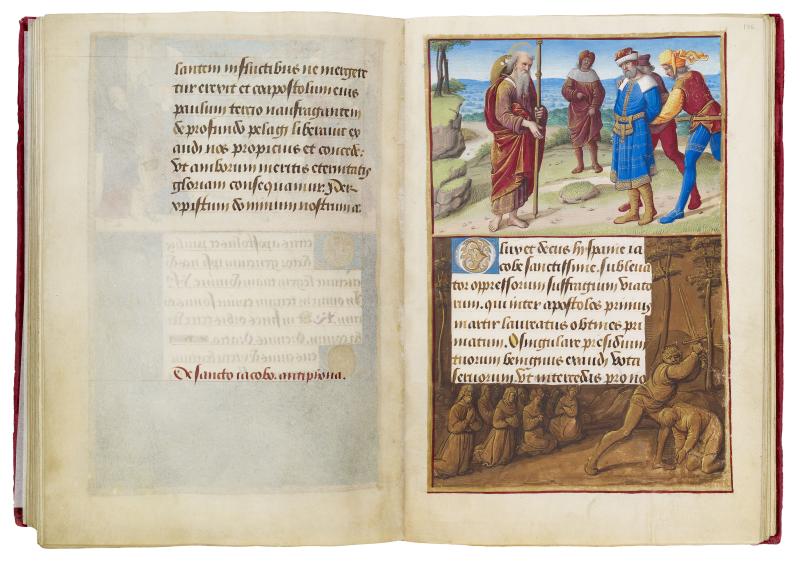 santem in fluctibus ne mergere
tur erexit et coapostolum eius
paulum tercio naufragantem
de profundo pelagi liberavit ex
audi nos propicius et concede:
vt amborum meritis eternitatis
gloriam consequamur. Per
xpistum dominum nostrum a.
De sancto iacobo. antiphona.
O lux et decus hyspanie ia
cobe sanctissime. subleva
tor oppressorum suffragium viato
rum. qui inter apostolos primus
martir laureatus obtines pri
matum. O singulare presidium
tuorum benignus exaudi vota
servorum. Vt intercedas pro no